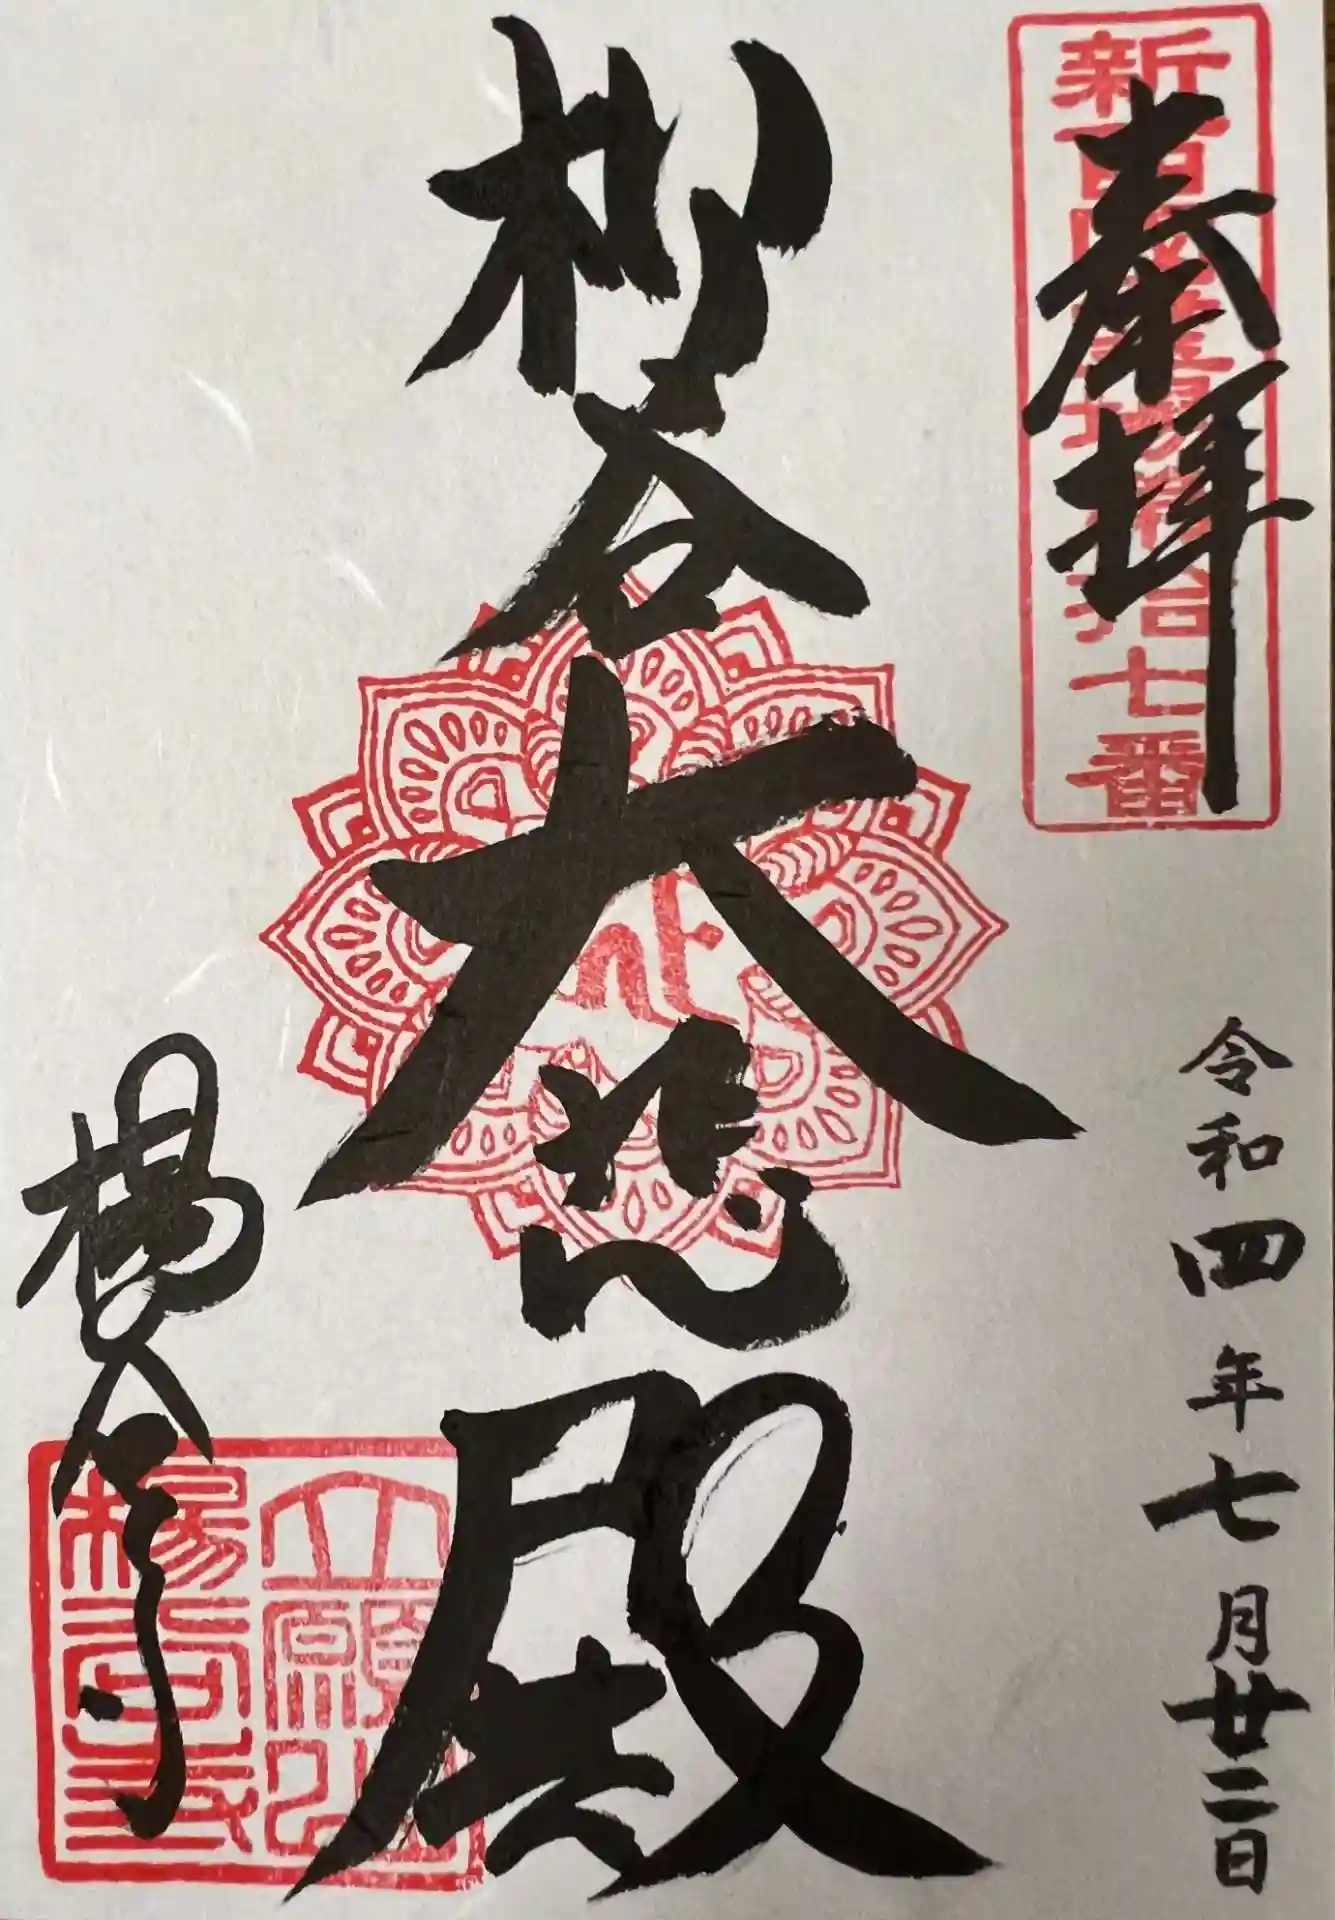 奉拝
新西国霊場第拾七番
令和四年七月廿二日
柳谷大悲殿
楊谷寺
立願山
楊谷寺